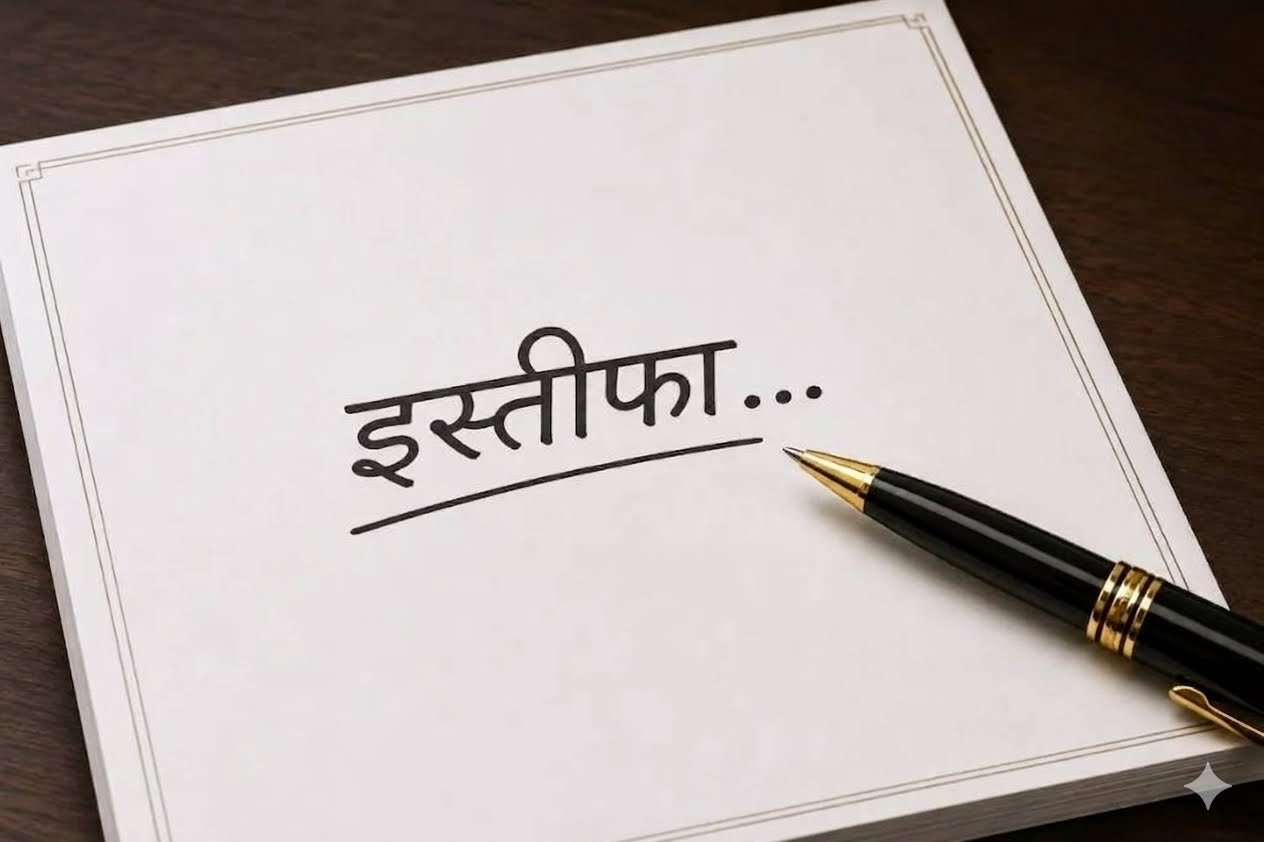 इस्तीफा...